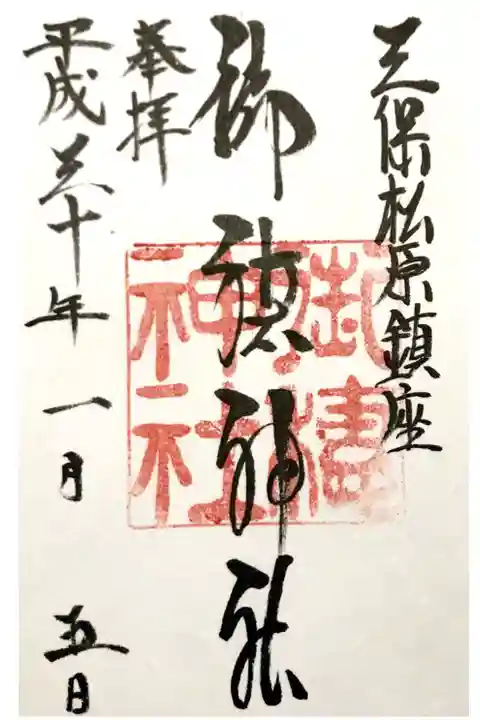 三保松原鎮座
御穂神社
奉拝
平成三十年一月五日
御穗神社